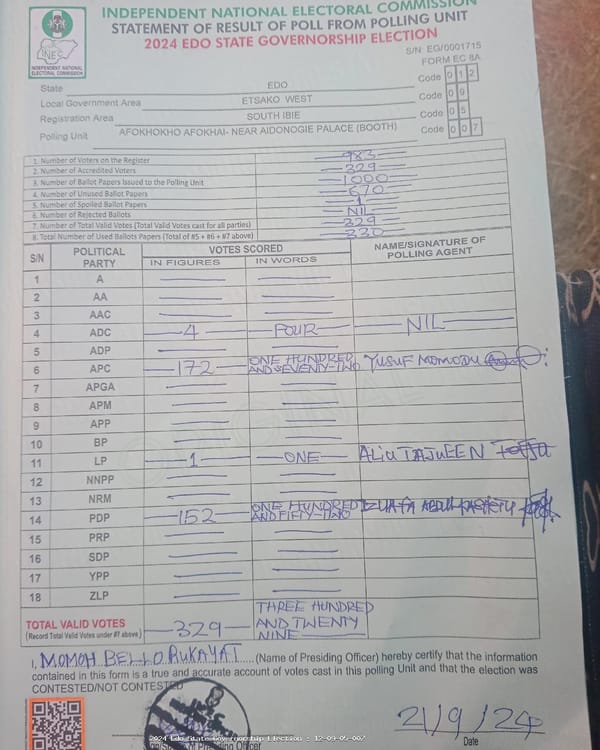 INDEPENDENT NATIONAL ELECTORAL COMMISSION
STATEMENT OF RESULT OF POLL FROM POLLING UNIT
2024 EDO STATE GOVERNORSHIP ELECTION
S/N EG/0001715
FORM EC 8A
INEC
INDEPENDENT NATIONAL
ELECTORAL COMMISSION
State EDO Code 0 1 2
Local Government Area ETSAKO WEST Code 0 9
Registration Area SOUTH IBIE Code 0 5
Polling Unit AFOKHOKHO AFOKHAI- NEAR AIDONOGIE PALACE (BOOTH) Code 0 0 7
1. Number of Voters on the Register 983
2. Number of Accredited Voters 329
3. Number of Ballot Papers Issued to the Polling Unit 1000
4. Number of Unused Ballot Papers 670
5. Number of Spoiled Ballot Papers 1
6. Number of Rejected Ballots NIL
7. Number of Total Valid Votes (Total Valid Votes cast for all parties) 329
8. Total Number of Used Ballots Papers (Total of #5 + #6 + #7 above) 330
S/N POLITICAL PARTY VOTES SCORED NAME/SIGNATURE OF POLLING AGENT
IN FIGURES IN WORDS
1 A
2 AA
3 AAC
4 ADC 4 FOUR NIL
5 ADP
6 APC 172 ONE HUNDRED AND SEVENTY-TWO YUSUF MOMODU
7 APGA
8 APM
9 APP
10 BP
11 LP 1 ONE ALIU TAJUEEN
12 NNPP
13 NRM
14 PDP 152 ONE HUNDRED AND FIFTY-TWO
15 PRP
16 SDP
17 YPP
18 ZLP
TOTAL VALID VOTES
(Record Total Valid Votes under #7 above) 329 THREE HUNDRED AND TWENTY NINE
I, MOMOH BELLO RUKAYAT (Name of Presiding Officer) hereby certify that the information
contained in this form is a true and accurate account of votes cast in this polling Unit and that the election was
CONTESTED/NOT CONTESTED
21/9/24
Date
2024 Edo State Governorship Election : 12-09-05-007